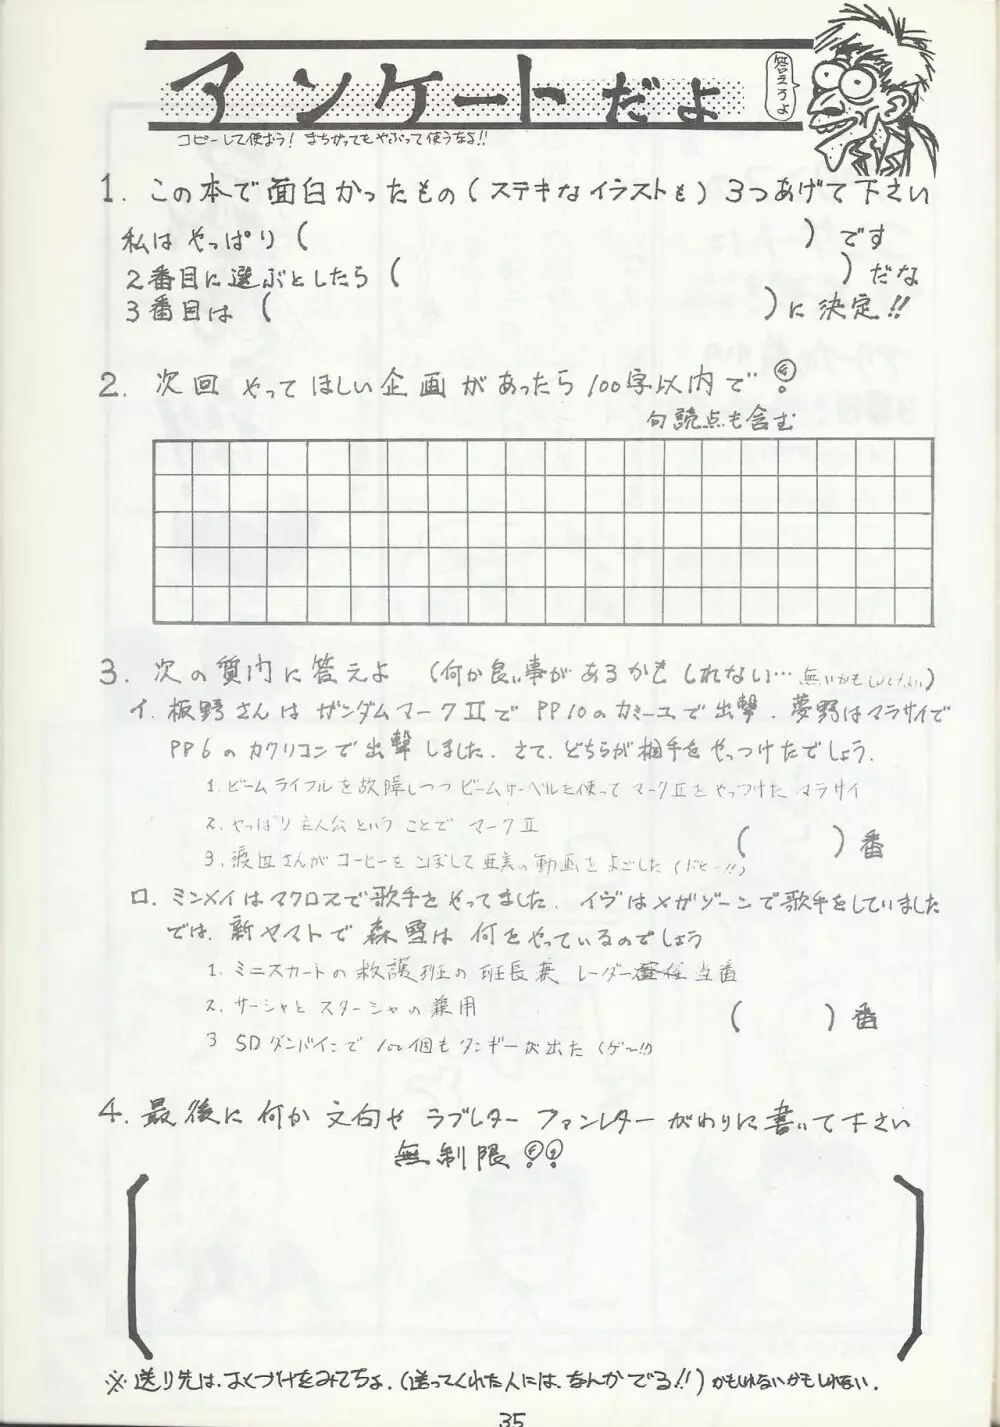 アンケートだよ
答えろよ
コピーして使おう！ まちがってもやぶって使うなよ!!
1. この本で面白かったもの(ステキなイラストも)3つあげて下さい
私はやっぱり( )です
2番目に選ぶとしたら( )だな
3番目は( )に決定!!
2. 次回やってほしい企画があったら100字以内で
句読点も含む
3. 次の質問に答えよ (何か良い事があるかもしれない…無いかもしれない)
イ. 板野さんはガンダムマークⅡでPP10のカミーユで出撃. 夢野はマラサイで
PP6のカクリコンで出撃しました. さて、どちらが相手をやっつけたでしょう.
1. ビームライフルを故障しつつビームサーベルを使ってマークⅡをやっつけたマラサイ
2. やっぱり主人公ということでマークⅡ
( )番
3. 板さんがコーヒーをこぼして亜美の動画をよごした(ドヒー!!)
ロ. ミンメイはマクロスで歌手をやってました. イヴはメガゾーンで歌手をしていました
では、新ヤマトで森雪は何をやっているのでしょう
1. ミニスカートの救護班の班長兼レーダー担当番
2. サーシャとスターシャの兼用
( )番
3 SDダンバインで100個もタンギーが出た(ゲー!!)
4. 最後に何か文句やラブレターファンレターがわりに書いて下さい
無制限
※送り先は、おくづけをみてちょ. (送ってくれた人には、なんかでる!!)かもしれないかもしれない.
35